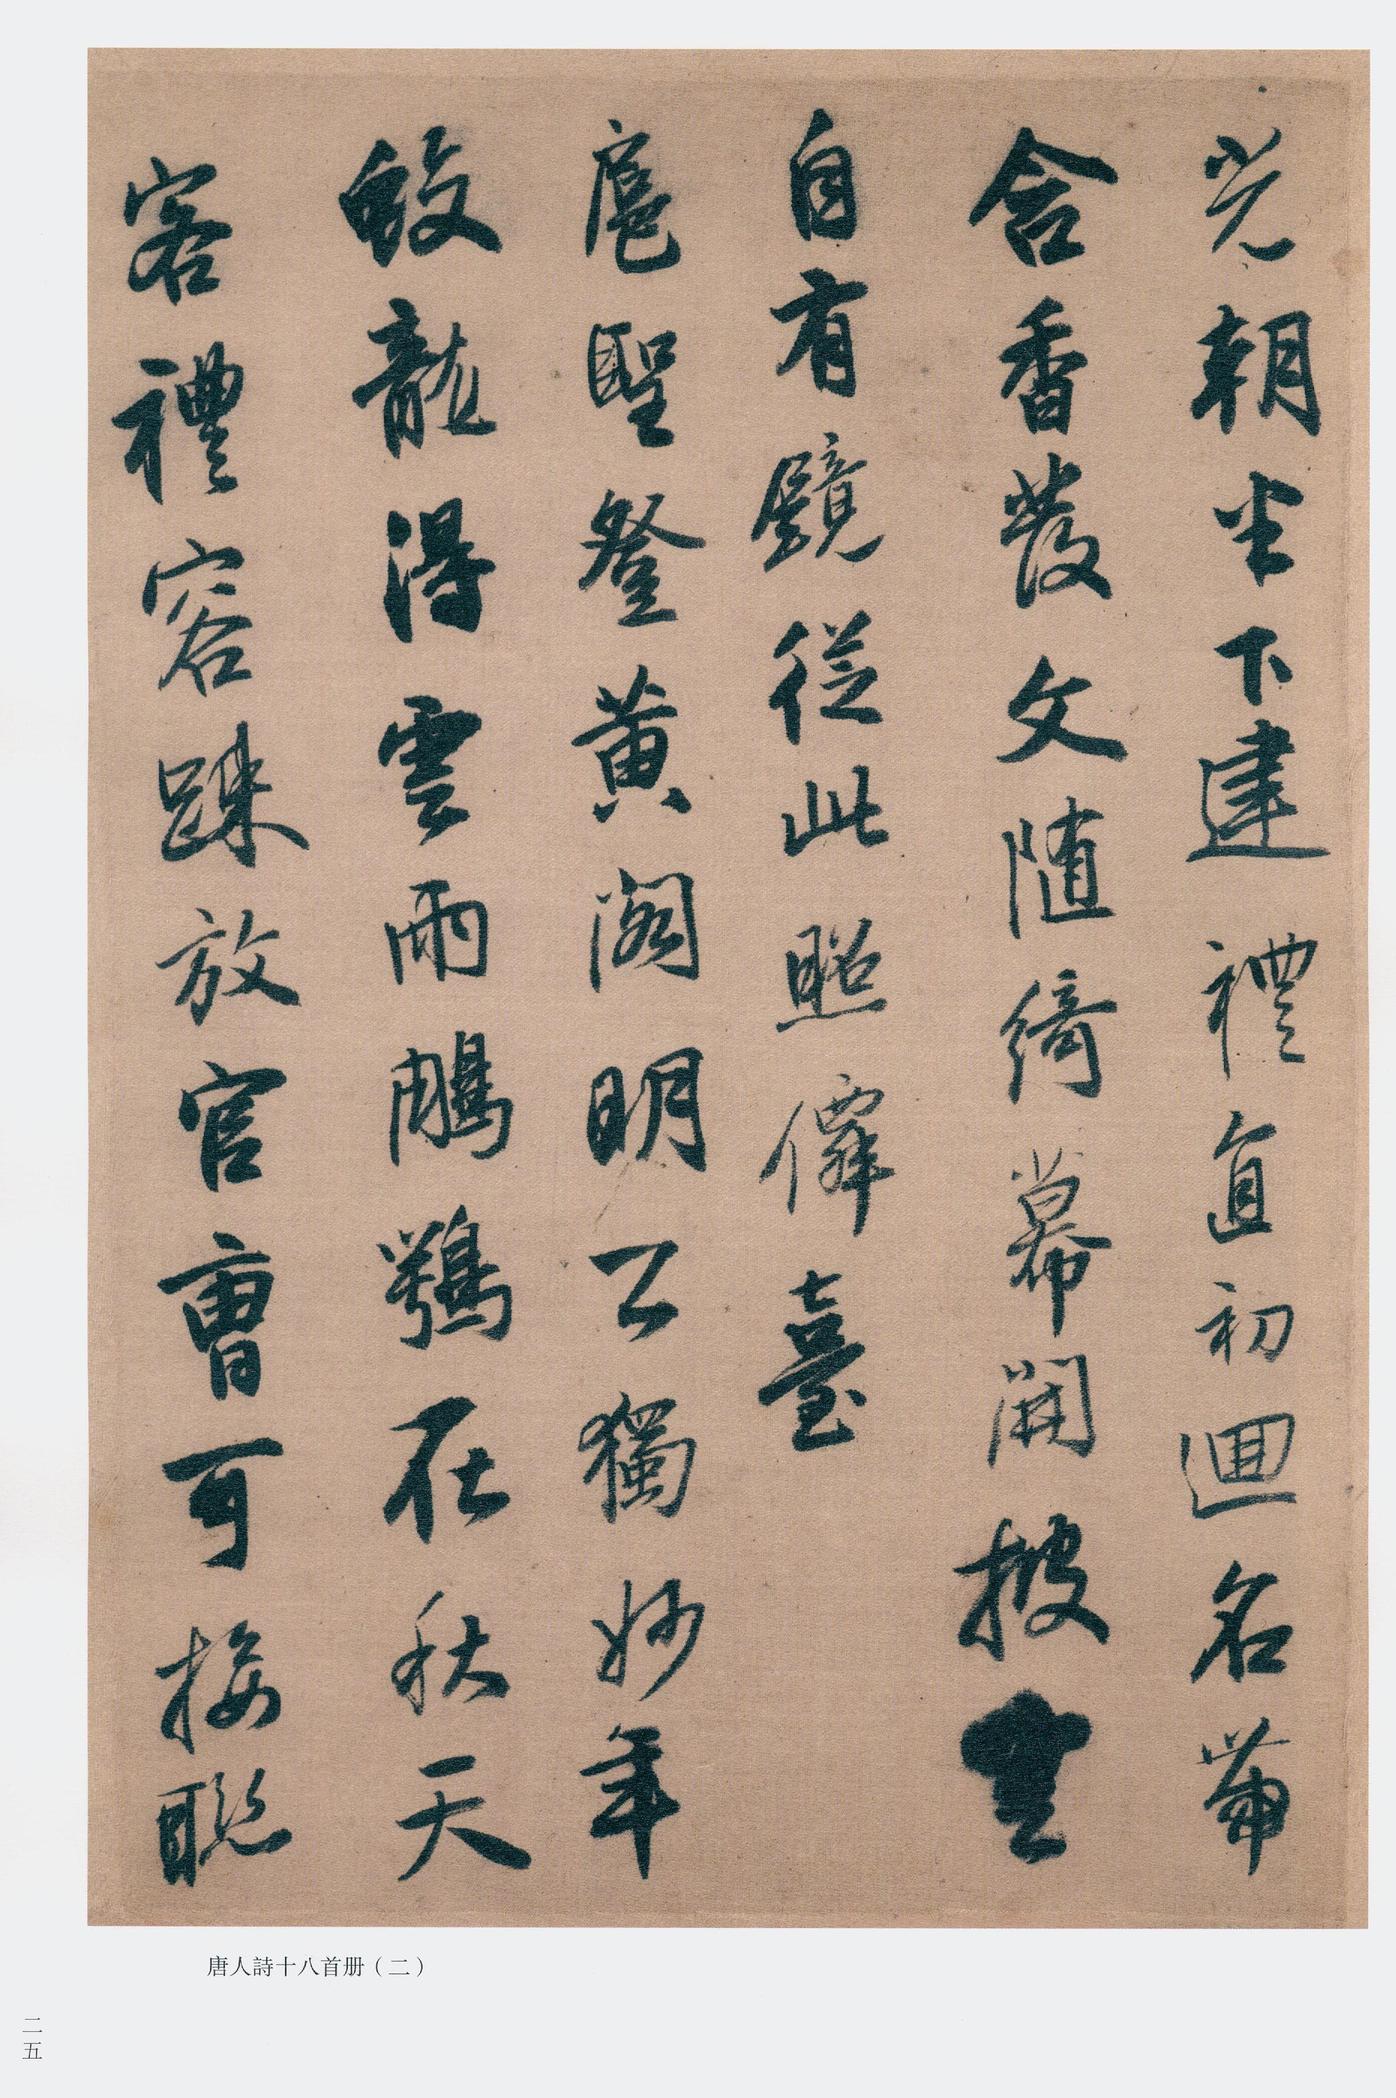 光朝半下建禮直初迴名帶
含香發文隨綺幕開披雲
自有鏡從此照僊臺
扈聖登黃閣明公獨妙年
蛟龍得雲雨鵰鶚在秋天
客禮容疎放官曹可接聯
唐人詩十八首册（二）
二五